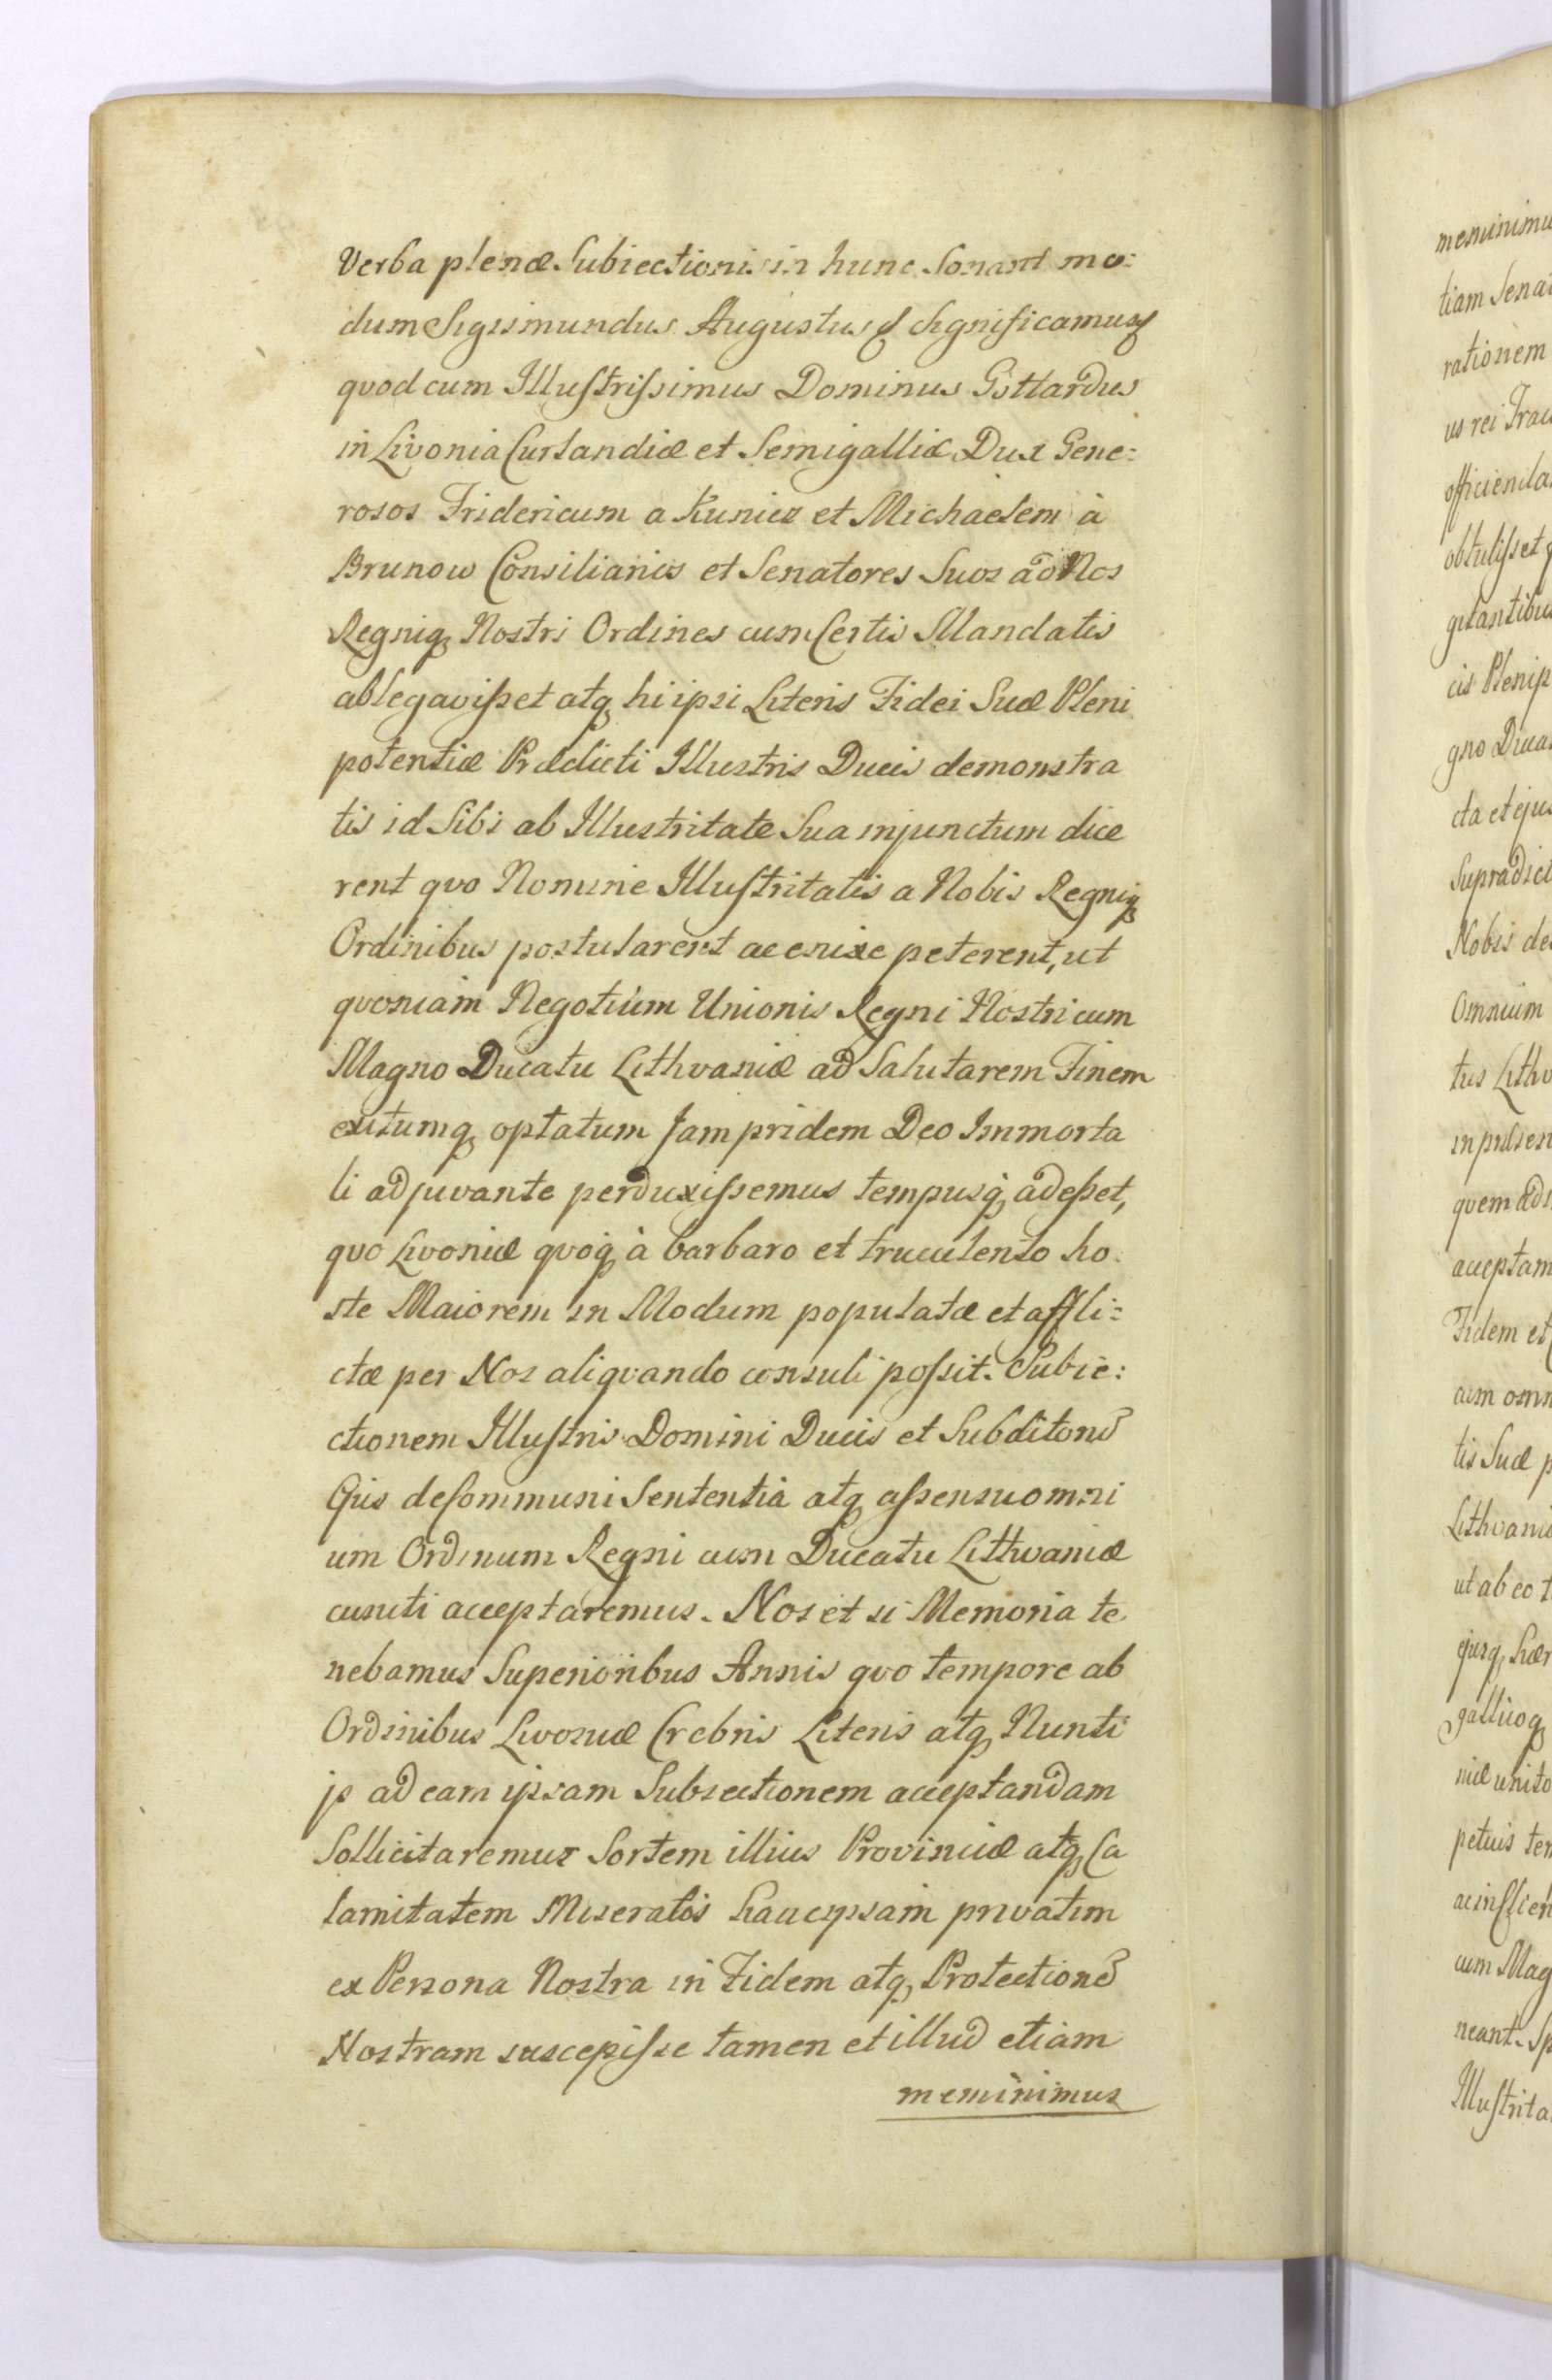 Verba plenæ Subiectionis in hunc Sonant mo:
dum Sigismundus Augustus & Significamus
quod cum Illustrissimus Dominus Gottardus
in Livonia Curlandiæ et Semigalliæ Dux Gene:
rosos Fridericum a Kunicz et Michaelem à
Brunow Consiliarios et Senatores Suos ad Nos
Regniq Nostri Ordines cum Certis Mandatis
ablegavisset atq hi ipsi Literis Fidei Suæ Pleni
potentiæ Prædicti Illustris Ducis demonstra
tis id Sibi ab Illustritate Sua injunctum dice
rent qvo Nomine Illustritatis a Nobis Regniq
Ordinibus postularent ac enixe peterent, ut
qvoniam Negotium Unionis Regni Nostri cum
Magno Ducatu Lithvaniæ ad Salutarem Finem
exitumq optatum Jam pridem Deo Immorta
li adjuvante perduxissemus tempusq adesset,
qvo Livoniæ qvoq à barbaro et truculento ho
ste Maiorem in Modum populatæ et affli:
ctæ per Nos aliqvando consuli possit. Subie:
ctionem Illustris Domini Ducis et Subditorū
Ejus de Communi Sententia atq assensu omni
um Ordinum Regni cum Ducatu Lithvaniæ
cuniti acceptaremus. Nos et si Memoria te
nebamus Superioribus Annis qvo tempore ab
Ordinibus Livoniæ Crebris Literis atq Nunti
js ad eam ipsam Subiectionem acceptandam
Sollicitaremur Sortem illius Provinciæ atq Ca
lamitatem Miseratos hanc ipsam privatim
ex Persona Nostra in Fidem atq Protectionē
Nostram suscepisse tamen et illud etiam
meminimus
tiam Sena
rationem
us rei
obtulisset
gitantibus
gno Duca
cta et ejus
Supradict
Nobis de
Omnium
tus Lithv
qvem ad
acceptam
Fidem et
cum omn
tis Suæ p
Lithvaniæ
ut ab eo t
niæ unito
petuis ter
cum Mag
neant. Sp
Illustrita